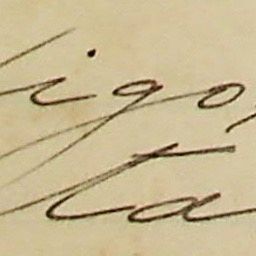 igo,
ta